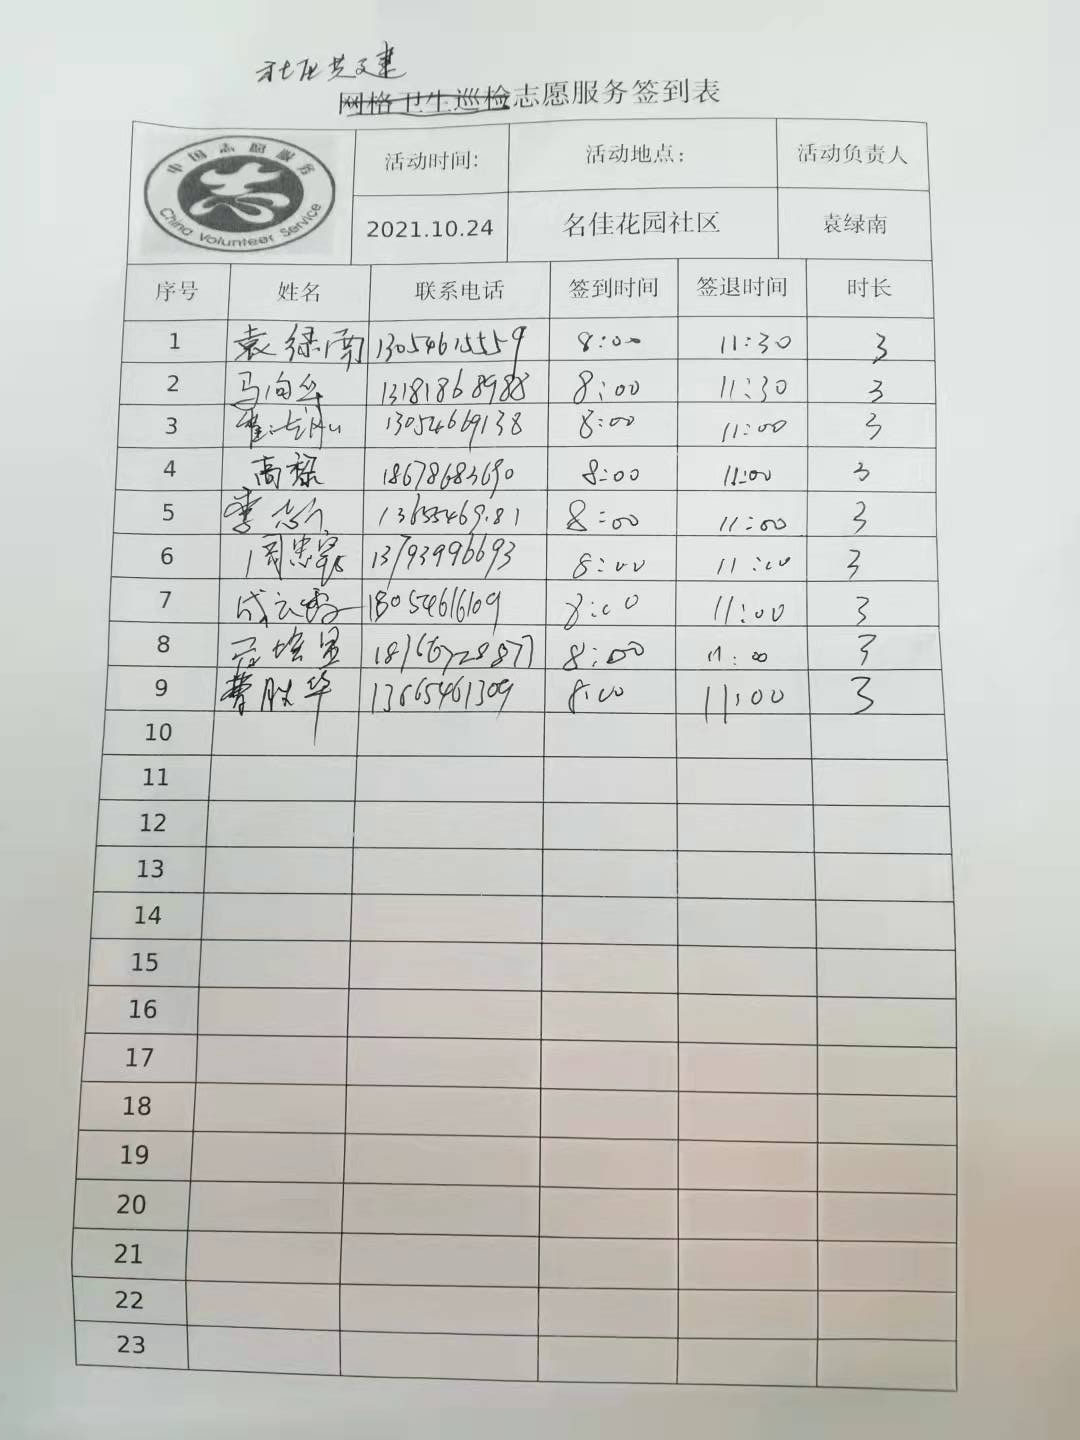 社区共建
网格卫生巡检志愿服务签到表
中国志愿服务
China Volunteer Service
活动时间: 活动地点: 活动负责人
2021.10.24 名佳花园社区 袁绿南
序号 姓名 联系电话 签到时间 签退时间 时长
1 袁绿南 13054615559 8:00 11:30 3
2 马向华 13181868988 8:00 11:30 3
3 13054669138 8:00 11:00 3
4 高 18678683690 8:00 11:00 3
5 李 8:00 11:00 3
6 周忠 13793996693 8:00 11:00 3
7 成云 18054616109 8:00 11:00 3
8 18766728877 8:00 11:00 3
9 曹胜华 13665461309 8:00 11:00 3
10
11
12
13
14
15
16
17
18
19
20
21
22
23